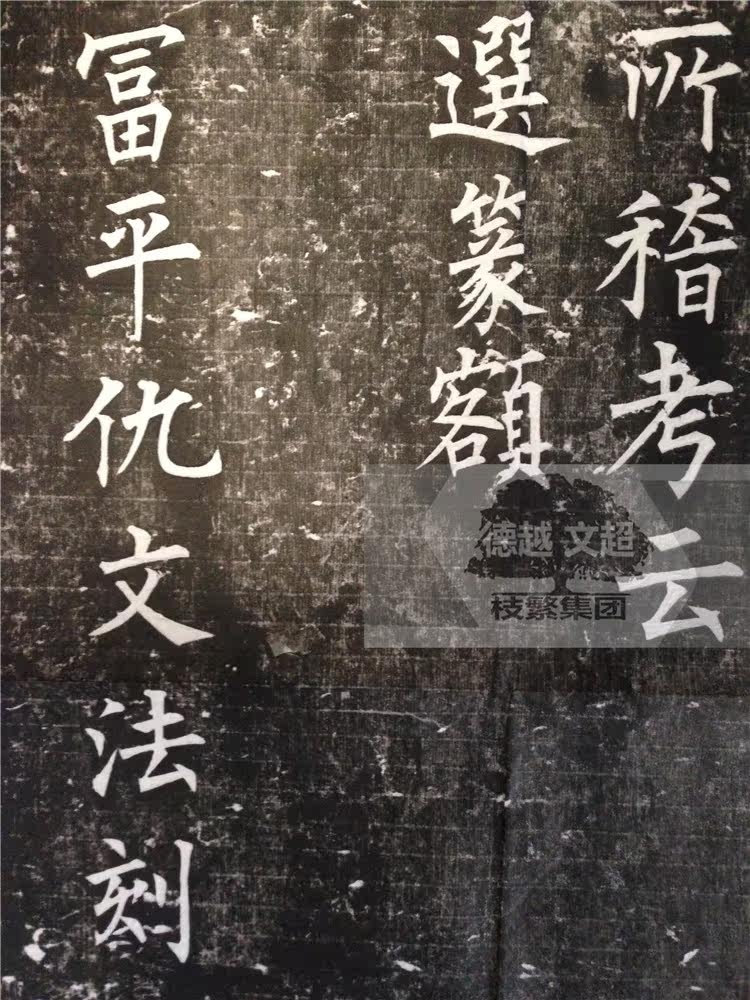 所稽考云
選篆額
冨平仇文法刻
德越 文超
枝繁集团